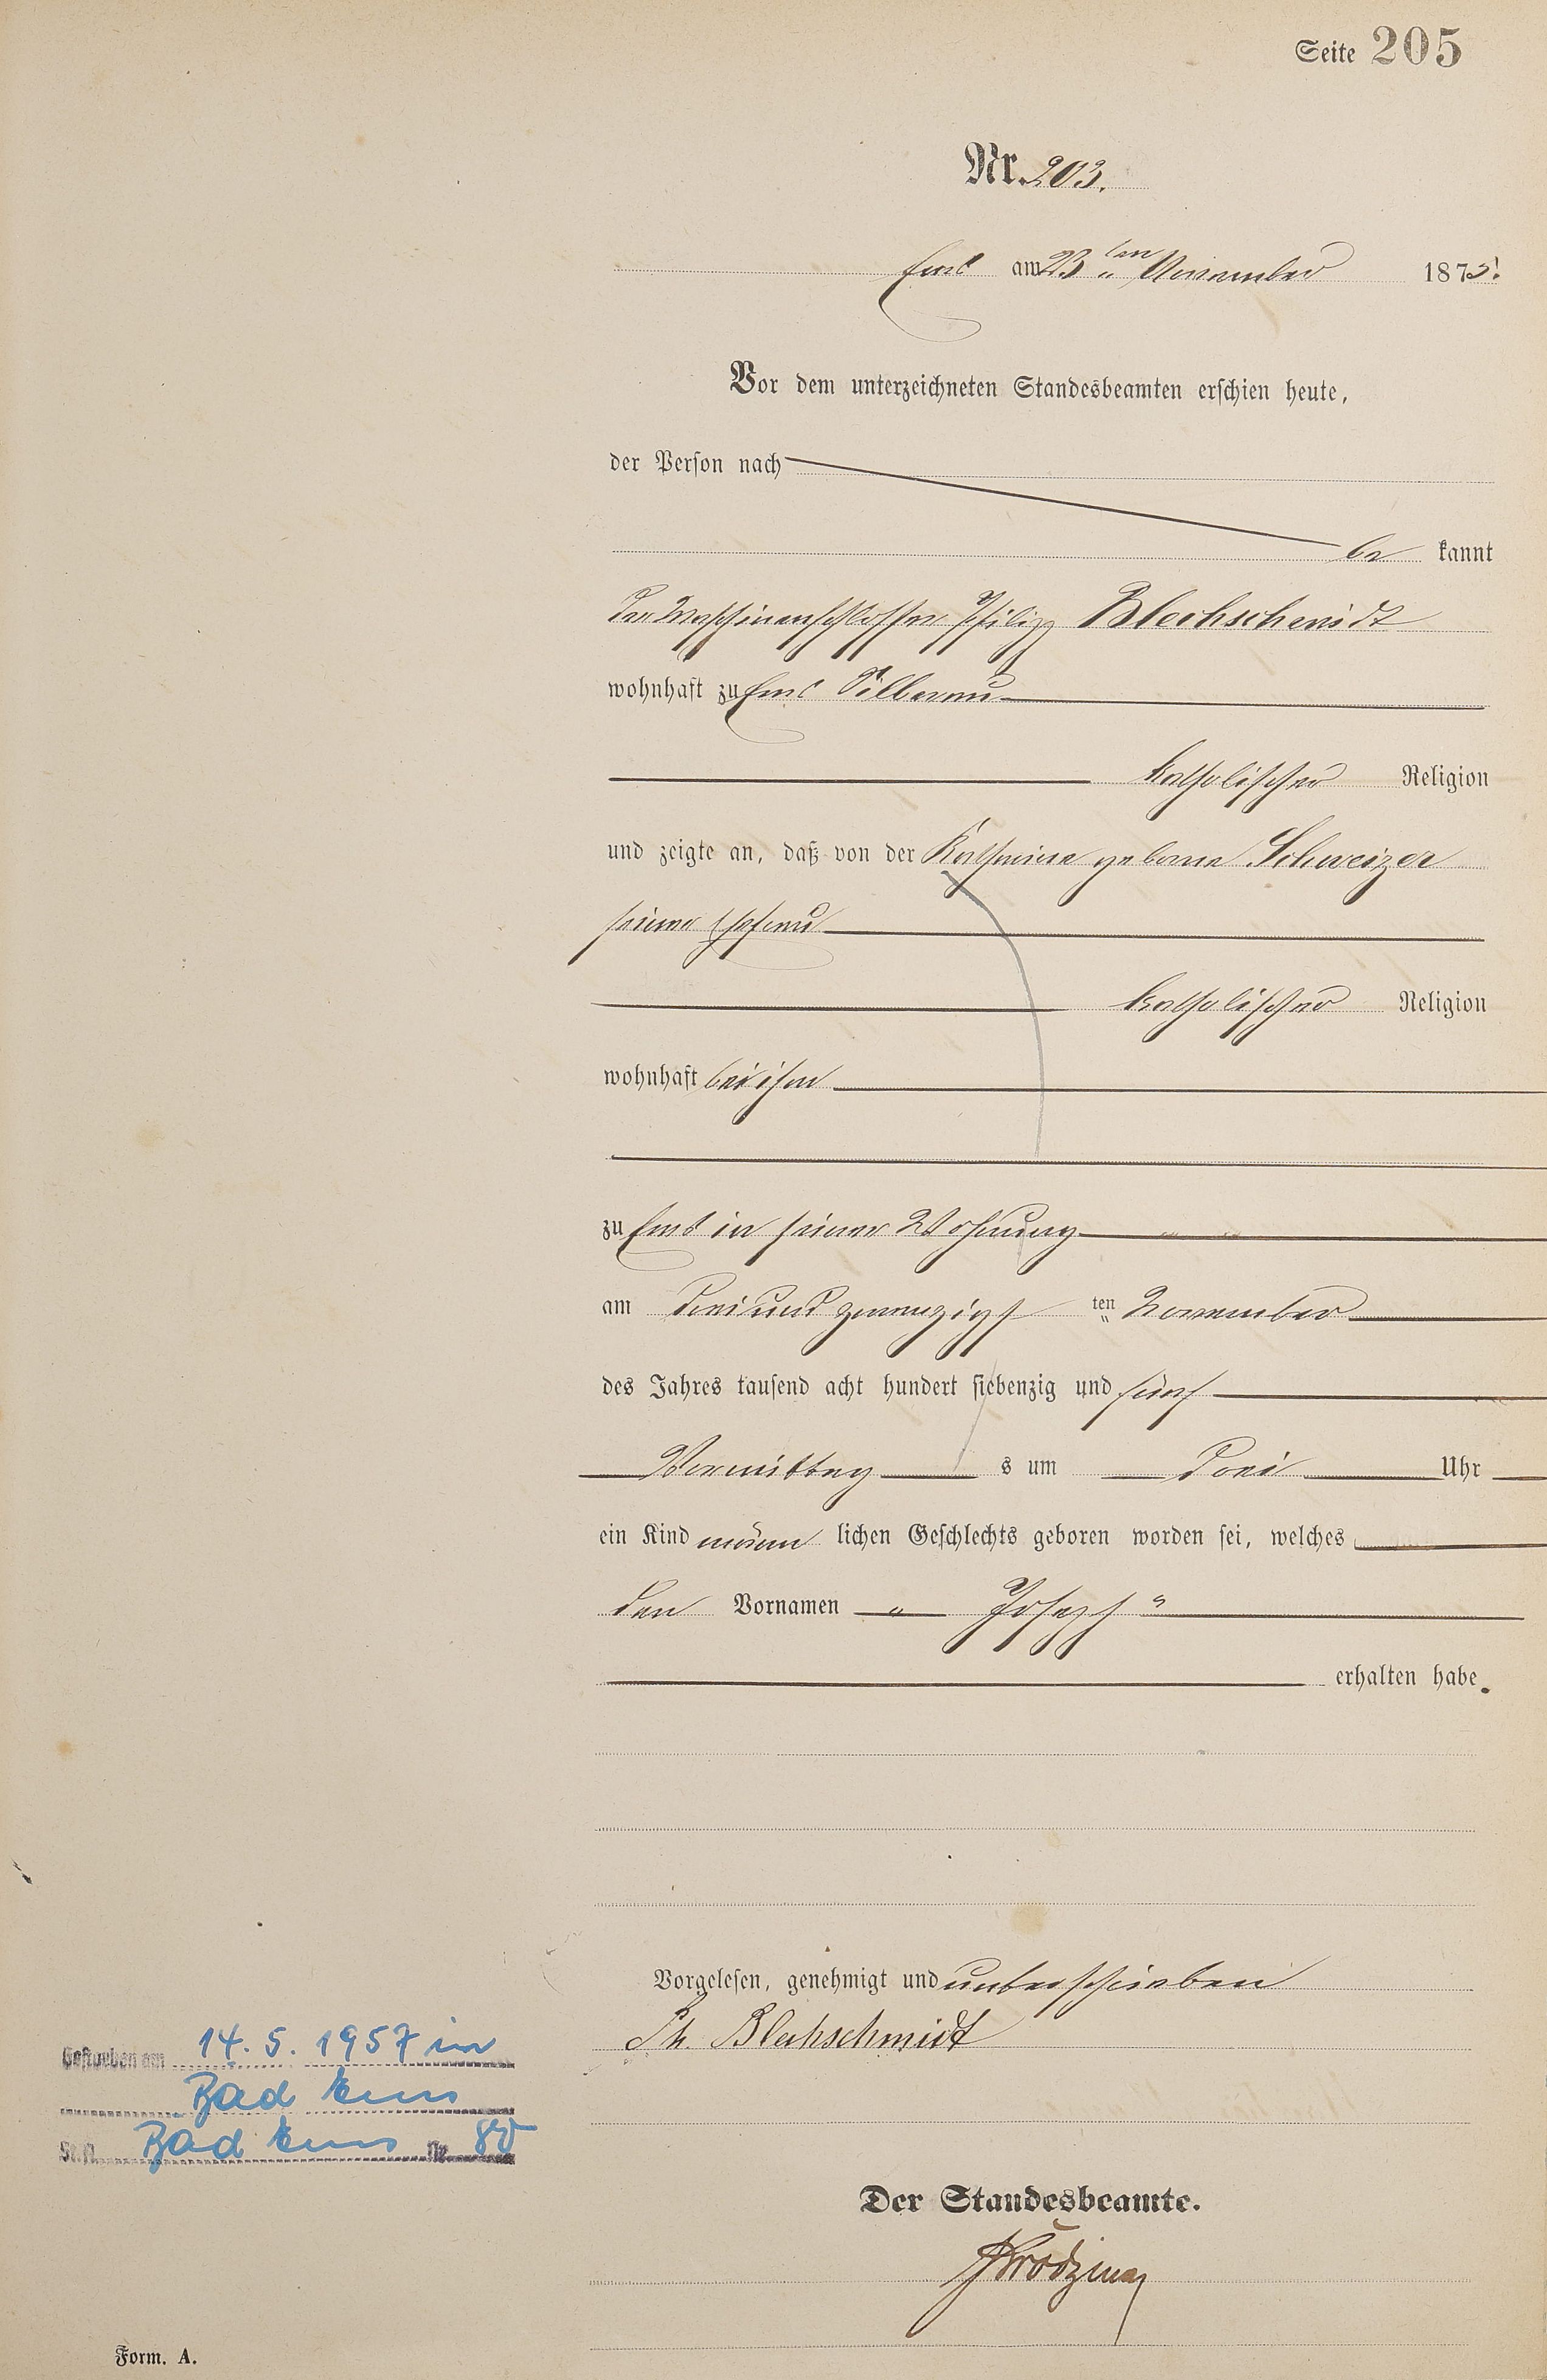 Seite 205
Nr. 203.
Ems am 23 ten November 1875!
Vor dem unterzeichneten Standesbeamten erschien heute,
der Person nach
be kannt
der Maschinenschlosser Philipp Blechschmidt
wohnhaft zu Ems Silberau
katholischer Religion
und zeigte an, daß von der Katharina geborne Schweizer
seiner Ehefrau
katholischer Religion
wohnhaft bei ihm
zu Ems in seiner Wohnung
am drei und zwanzigs ten November
des Jahres tausend acht hundert siebenzig und fünf
Vormittag s um drei Uhr
ein Kind männ lichen Geschlechts geboren worden sei, welches
den Vornamen " Joseph "
erhalten habe.
Vorgelesen, genehmigt und unterschrieben
Ph. Blechschmidt
Gestorben am 14. 5. 1957 in
Bad Ems
St.A. Bad Ems Nr. 80
Der Standesbeamte.
Form. A.